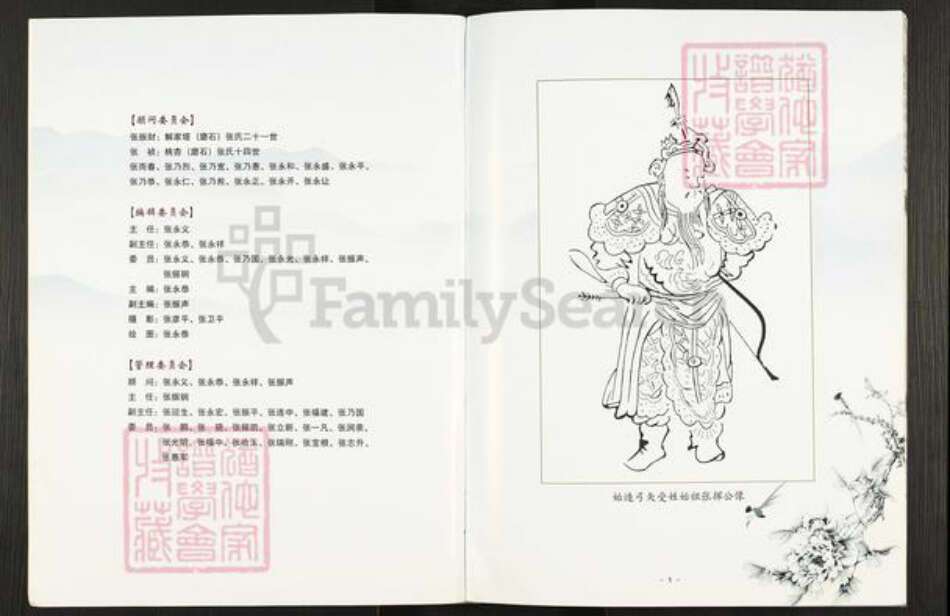 【顾问委员会】
张振财：解家塔（磨石）张氏二十一世
张　祯：桃杏（磨石）张氏十四世
张而春、张乃烈、张乃宽、张乃惠、张永和、张永盛、张永平、
张乃恭、张永仁、张乃熙、张永正、张永开、张永让
【编辑委员会】
主　任：张永义
副主任：张永恭、张永祥
委　员：张永义、张永恭、张乃国、张永光、张永祥、张振声、
张振钢
主　编：张永恭
副主编：张振声
摄　影：张彦平、张卫平
绘　图：张永恭
【管理委员会】
顾　问：张永义、张永恭、张永祥、张振声
主　任：张振钢
副主任：张运生、张永宏、张振平、张连中、张福建、张乃国
委　员：张　鹏、张　晓、张振凯、张立新、张一凡、张润录、
张光明、张福中、张栓玉、张瑞刚、张宝根、张志升、
张惠军
FamilySear
始造弓矢受姓始祖张挥公像
- 1 -